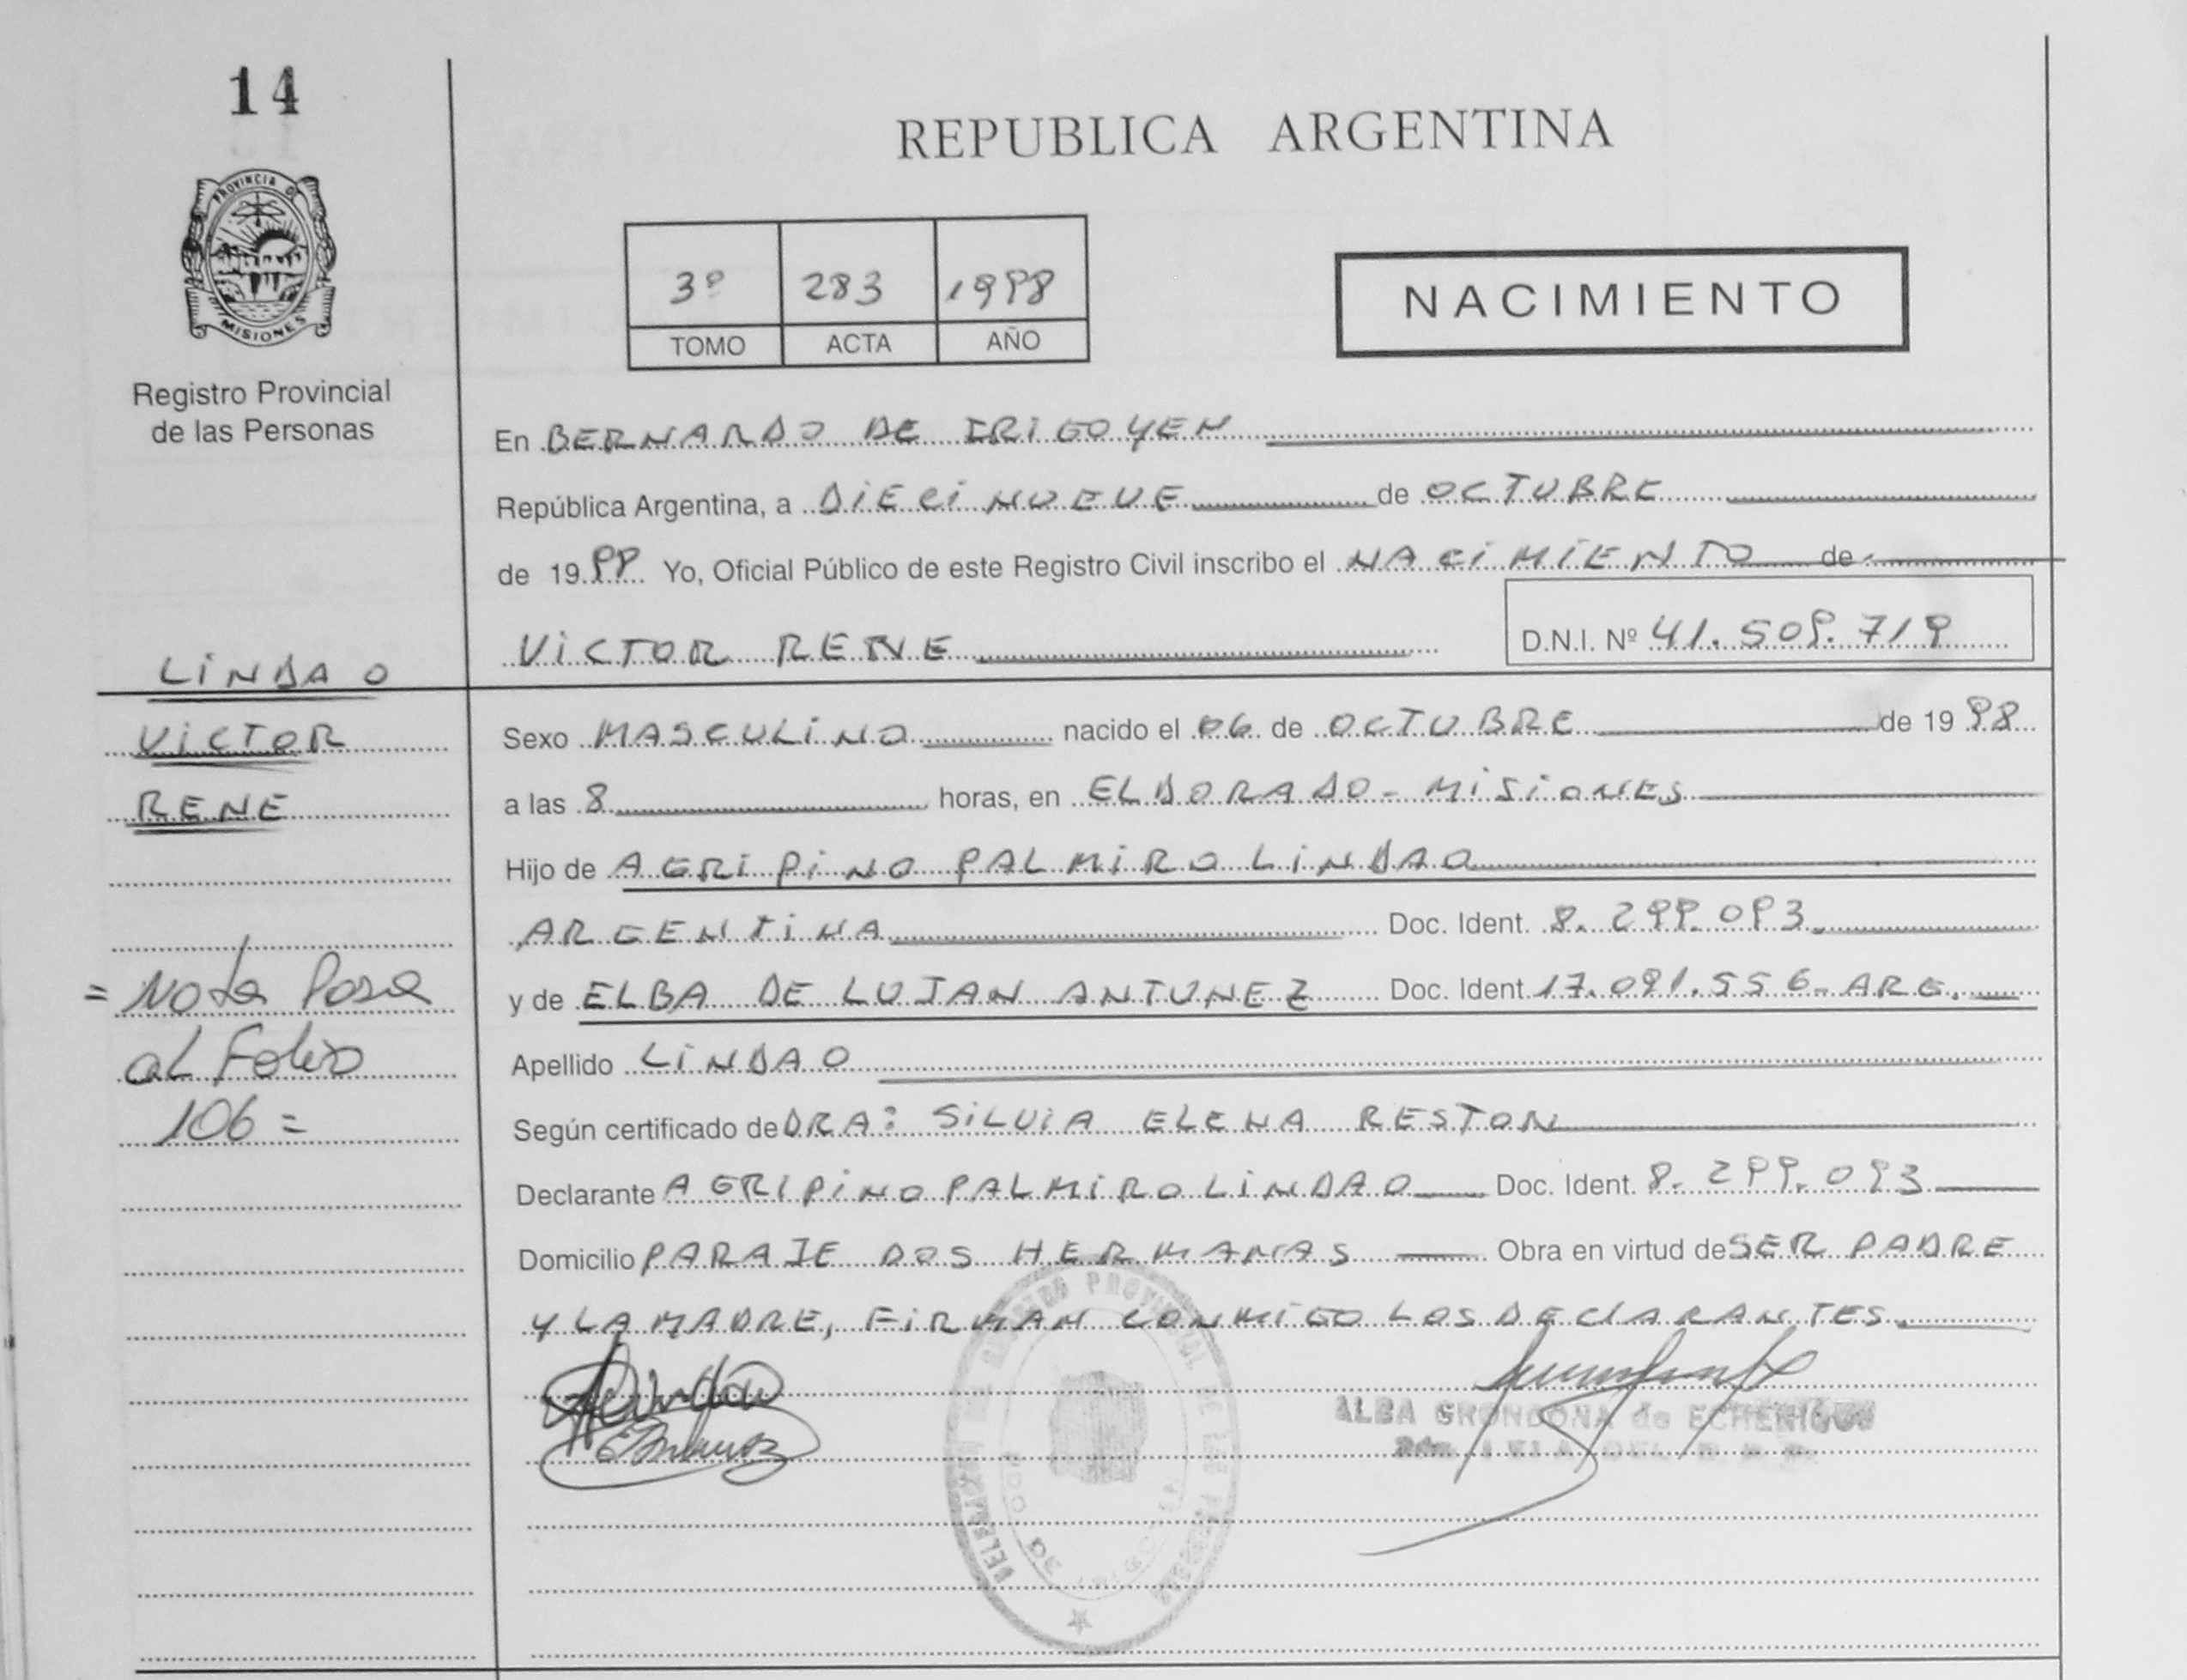 14
REPUBLICA ARGENTINA
PROVINCIA DE
MISIONES
3º 283 1998
TOMO ACTA AÑO
NACIMIENTO
Registro Provincial
de las Personas
En BERNARDO DE IRIGOYEN
República Argentina, a DIECINUEVE de OCTUBRE
de 1999 Yo, Oficial Público de este Registro Civil inscribo el NACIMIENTO de
VICTOR RENE D.N.I. Nº 41.509.719
LINDAO
VICTOR
RENE
Sexo MASCULINO nacido el 06 de OCTUBRE de 1998
a las 8 horas, en ELDORADO - MISIONES
Hijo de AGRIPINO PALMIRO LINDAO
ARGENTINA Doc. Ident. 8.299.093
y de ELBA DE LUJAN ANTUNEZ Doc. Ident 17.091.556- ARG.
Apellido LINDAO
Según certificado de DRA: SILVIA ELENA RESTON
Declarante AGRIPINO PALMIRO LINDAO Doc. Ident. 8.299.093
Domicilio PARAJE DOS HERMANAS Obra en virtud de SER PADRE
Y LA MADRE, FIRMAN CONMIGO LOS DECLARANTES.
= Nota Pasa
al Folio
106 =
ALBA GRONDONA de ECHENIQUE